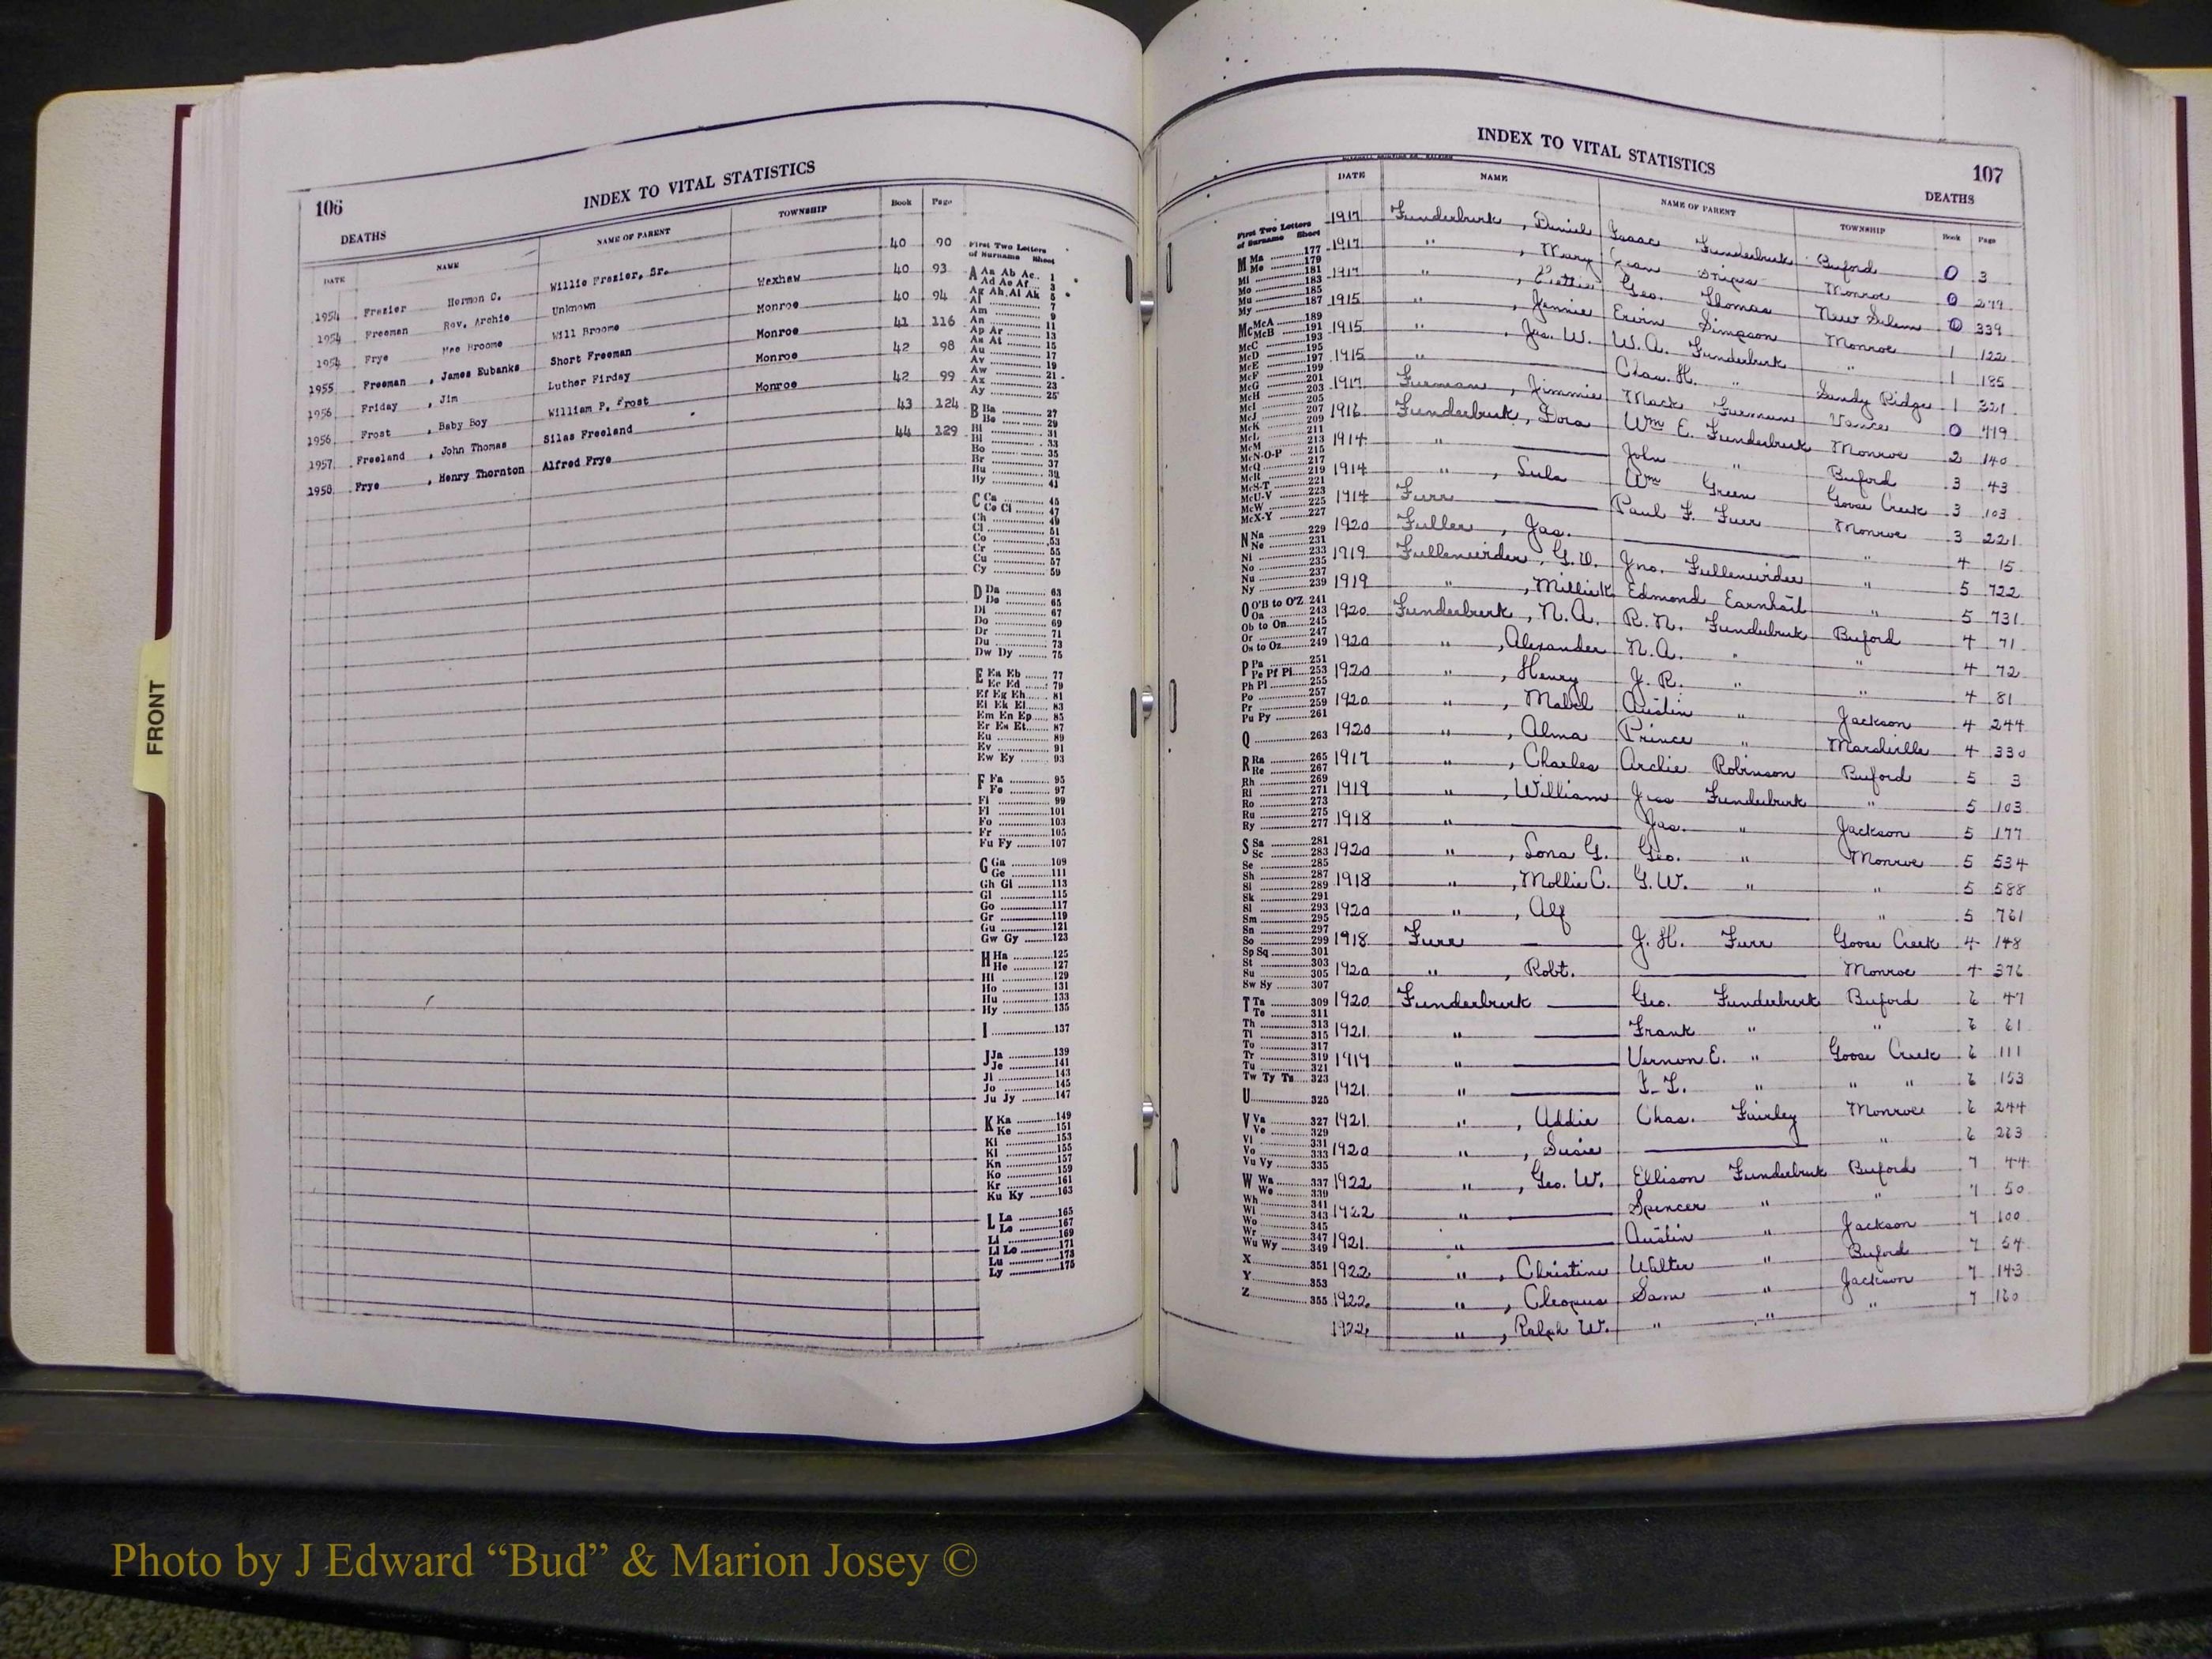 106
INDEX TO VITAL STATISTICS
DEATHS
DATE NAME NAME OF PARENT TOWNSHIP Book Page
1954 Frazier Herman C. Willie Frazier, Sr. Wexhaw 40 90
1954 Freeman Rev. Archie Unknown Monroe 40 93
1954 Frye Mae Broome Will Broome Monroe 40 94
1955 Freeman , James Eubanks Short Freeman Monroe 41 116
1956 Friday , Jim Luther Firday Monroe 42 98
1956 Frost , Baby Boy William P. Frost 42 99
1957 Freeland , John Thomas Silas Freeland 43 124
1958 Frye , Henry Thornton Alfred Frye 44 129
First Two Letters
of Surname Sheet
A Aa Ab Ac 1
Ad Ae Af 3
Ag Ah Ai Ak 5
Al 7
Am 9
An 11
Ap Ar 13
As At 15
Au 17
Av 19
Aw 21
Ax 23
Ay 25
B Ba 27
Be 29
Bi 31
Bl 33
Bo 35
Br 37
Bu 39
By 41
C Ca 45
Ce Ci 47
Ch 49
Cl 51
Co 53
Cr 55
Cu 57
Cy 59
D Da 63
De 65
Di 67
Do 69
Dr 71
Du 73
Dw Dy 75
E Ea Eb 77
Ec Ed 79
Ef Eg Eh 81
Ei Ek El 83
Em En Ep 85
Er Es Et 87
Eu 89
Ev 91
Ew Ey 93
F Fa 95
Fe 97
Fi 99
Fl 101
Fo 103
Fr 105
Fu Fy 107
G Ga 109
Ge 111
Gh Gi 113
Gl 115
Go 117
Gr 119
Gu 121
Gw Gy 123
H Ha 125
He 127
Hi 129
Ho 131
Hu 133
Hy 135
I 137
J Ja 139
Je 141
Ji 143
Jo 145
Ju Jy 147
K Ka 149
Ke 151
Ki 153
Kl 155
Kn 157
Ko 159
Kr 161
Ku Ky 163
L La 165
Le 167
Li 169
Ll Lo 171
Lu 173
Ly 175
INDEX TO VITAL STATISTICS
107
DEATHS
DATE NAME NAME OF PARENT TOWNSHIP Book Page
First Two Letters
of Surname Sheet
M Ma 177
Me 179
Mi 181
Mo 183
Mu 185
My 187
Mc McA 189
McB 191
McC 193
McD 195
McE 197
McF 199
McG 201
McH 203
McI 205
McJ 207
McK 209
McL 211
McM 213
McN-O-P 215
McQ 217
McR 219
McS-T 221
McU-V 223
McW 225
McX-Y 227
N Na 229
Ne 231
Ni 233
No 235
Nu 237
Ny 239
O O'B to O'Z 241
Oa 243
Ob to On 245
Or 247
Os to Oz 249
P Pa 251
Pe Pf Pi 253
Ph Pl 255
Po 257
Pr 259
Pu Py 261
Q 263
R Ra 265
Re 267
Rh 269
Ri 271
Ro 273
Ru 275
Ry 277
S Sa 281
Sc 283
Se 285
Sh 287
Si 289
Sk 291
Sl 293
Sm 295
Sn 297
So 299
Sp Sq 301
St 303
Su 305
Sw Sy 307
T Ta 309
Te 311
Th 313
Ti 315
To 317
Tr 319
Tu 321
Tw Ty Ts 323
U 325
V Va 327
Ve 329
Vi 331
Vo 333
Vu Vy 335
W Wa 337
We 339
Wh 341
Wi 343
Wo 345
Wr 347
Wu Wy 349
X 351
Y 353
Z 355
1917 Funderburk , Daniel Isaac Funderburk Buford 0 3
1917 " , Mary Snipes Monroe 0 279
1917 " , Geo. Thomas New Salem 0 339
1915 " , Jennie Ervin Simpson Monroe 1 122
1915 " , Jas. W. W. A. Funderburk " 1 185
1915 " Chas. H. " Sandy Ridge 1 321
1917 Furman , Jimmie Mack Furman Vance 0 419
1916 Funderburk , Dora Wm E. Funderburk Monroe 2 140
1914 " John " Buford 3 43
1914 " , Lula Wm Green Goose Creek 3 103
1914 Furr Paul F. Furr Monroe 3 221
1920 Fuller , Jas. " 4 15
1919 Fullenwider , G. W. Jno. Fullenwider " 5 722
1919 " , Millie K Edmond Earnhail " 5 731
1920 Funderburk , N. A. R. N. Funderburk Buford 4 71
1920 " , Alexander N. A. " " 4 72
1920 " , Henry J. R. " " 4 81
1920 " , Mabel Austin " Jackson 4 244
1920 " , Alma Prince " Marshville 4 330
1917 " , Charles Archie Robinson Buford 5 3
1919 " , William Jess Funderburk " 5 103
1918 " Jas. " Jackson 5 177
1920 " , Lona G. Geo. " Monroe 5 534
1918 " , Mollie C. G. W. " " 5 588
1920 " , Alf " 5 761
1918 Furr J. H. Furr Goose Creek 4 148
1920 " , Robt. Monroe 4 376
1920 Funderburk Geo. Funderburk Buford 6 47
1921 " Frank " " 6 61
1919 " Vernon E. " Goose Creek 6 111
1921 " " " " 6 153
1921 " , Addie Chas. Fairley Monroe 6 244
1920 " , Susie " 6 263
1922 " , Geo. W. Ellison Funderburk Buford 7 44
1922 " Spencer " " 7 50
1921 " Austin " Jackson 7 100
1922 " , Christine Walter " Buford 7 54
1922 " , Cleopus Sam " Jackson 7 143
1922 " , Ralph W. " " " 7 160
FRONT
Photo by J Edward “Bud” & Marion Josey ©